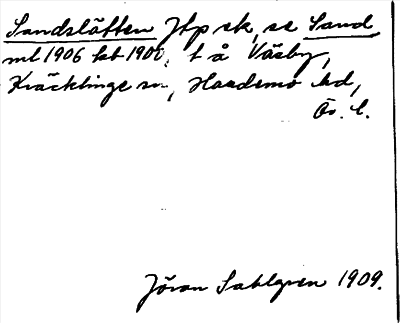 Sandslätten Jtp sk, se Sand
ml 1906 kb 1900, t å Väsby,
Kräcklinge sn, Hardemo hd,
Ör. l.
Jöran Sahlgren 1909.